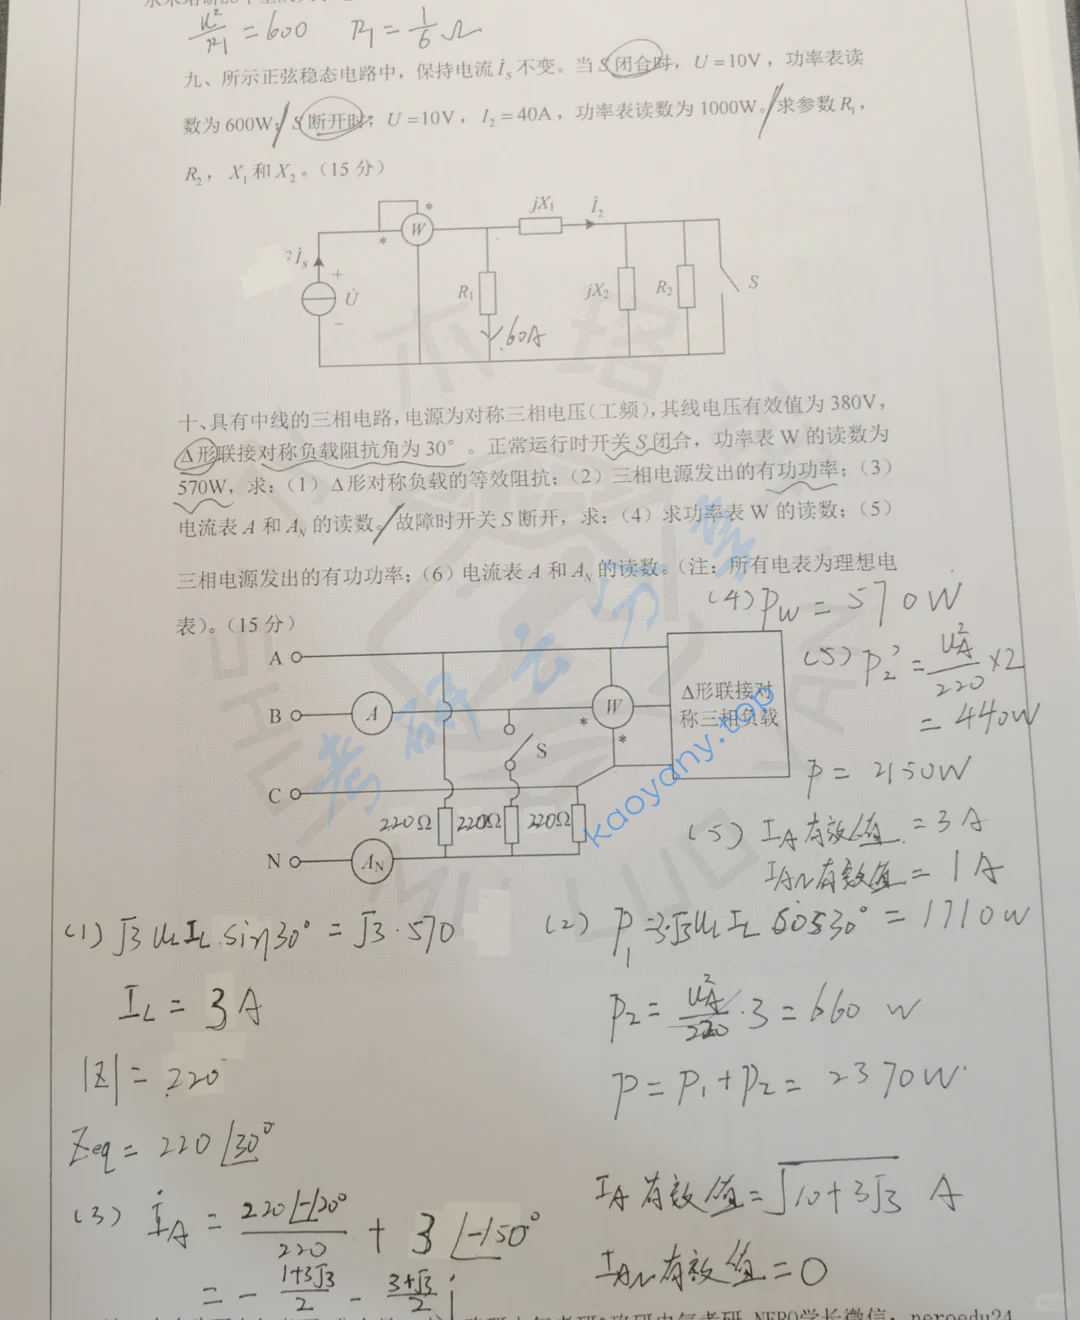 u²/R₁ = 600 R₁ = 1/6 Ω
九、所示正弦稳态电路中，保持电流 İs 不变。当 S 闭合时，U =10V，功率表读
数为 600W；S 断开时，U =10V，I₂ = 40A，功率表读数为 1000W。求参数 R₁，
R₂，X₁ 和 X₂。（15 分）
jX₁ İ₂
* W
*
İs + U̇ − R₁ jX₂ R₂ S
60A
十、具有中线的三相电路，电源为对称三相电压（工频），其线电压有效值为 380V，
Δ形联接对称负载阻抗角为 30°。正常运行时开关 S 闭合，功率表 W 的读数为
570W，求：（1）Δ形对称负载的等效阻抗；（2）三相电源发出的有功功率；（3）
电流表 A 和 A_N 的读数。故障时开关 S 断开，求：（4）求功率表 W 的读数；（5）
三相电源发出的有功功率；（6）电流表 A 和 A_N 的读数。（注：所有电表为理想电
表）。（15 分）
(4) P_W = 570W
A
(5) P₂' = U_A²/220 ×2
= 440W
B A * W Δ形联接对
称三相负载
S *
P = 2150W
C
220Ω 220Ω 220Ω
(5) I_A有效值 = 3A
N A_N
I_AN有效值 = 1A
(1) √3 U_L I_L sin30° = √3·570
(2) P₁ = 3·√3 U_L I_L cos30° = 1710W
I_L = 3A
P₂ = U_A²/220 ·3 = 660 W
|Z| = 220
P = P₁+P₂ = 2370W
Zeq = 220∠30°
(3) İ_A = 220∠-120°/220 + 3∠-150°
I_A有效值 = √(10+3√3) A
= - (1+3√3)/2 - (3+√3)/2 j
I_AN有效值 = 0
考研云分享
kaoyany.top